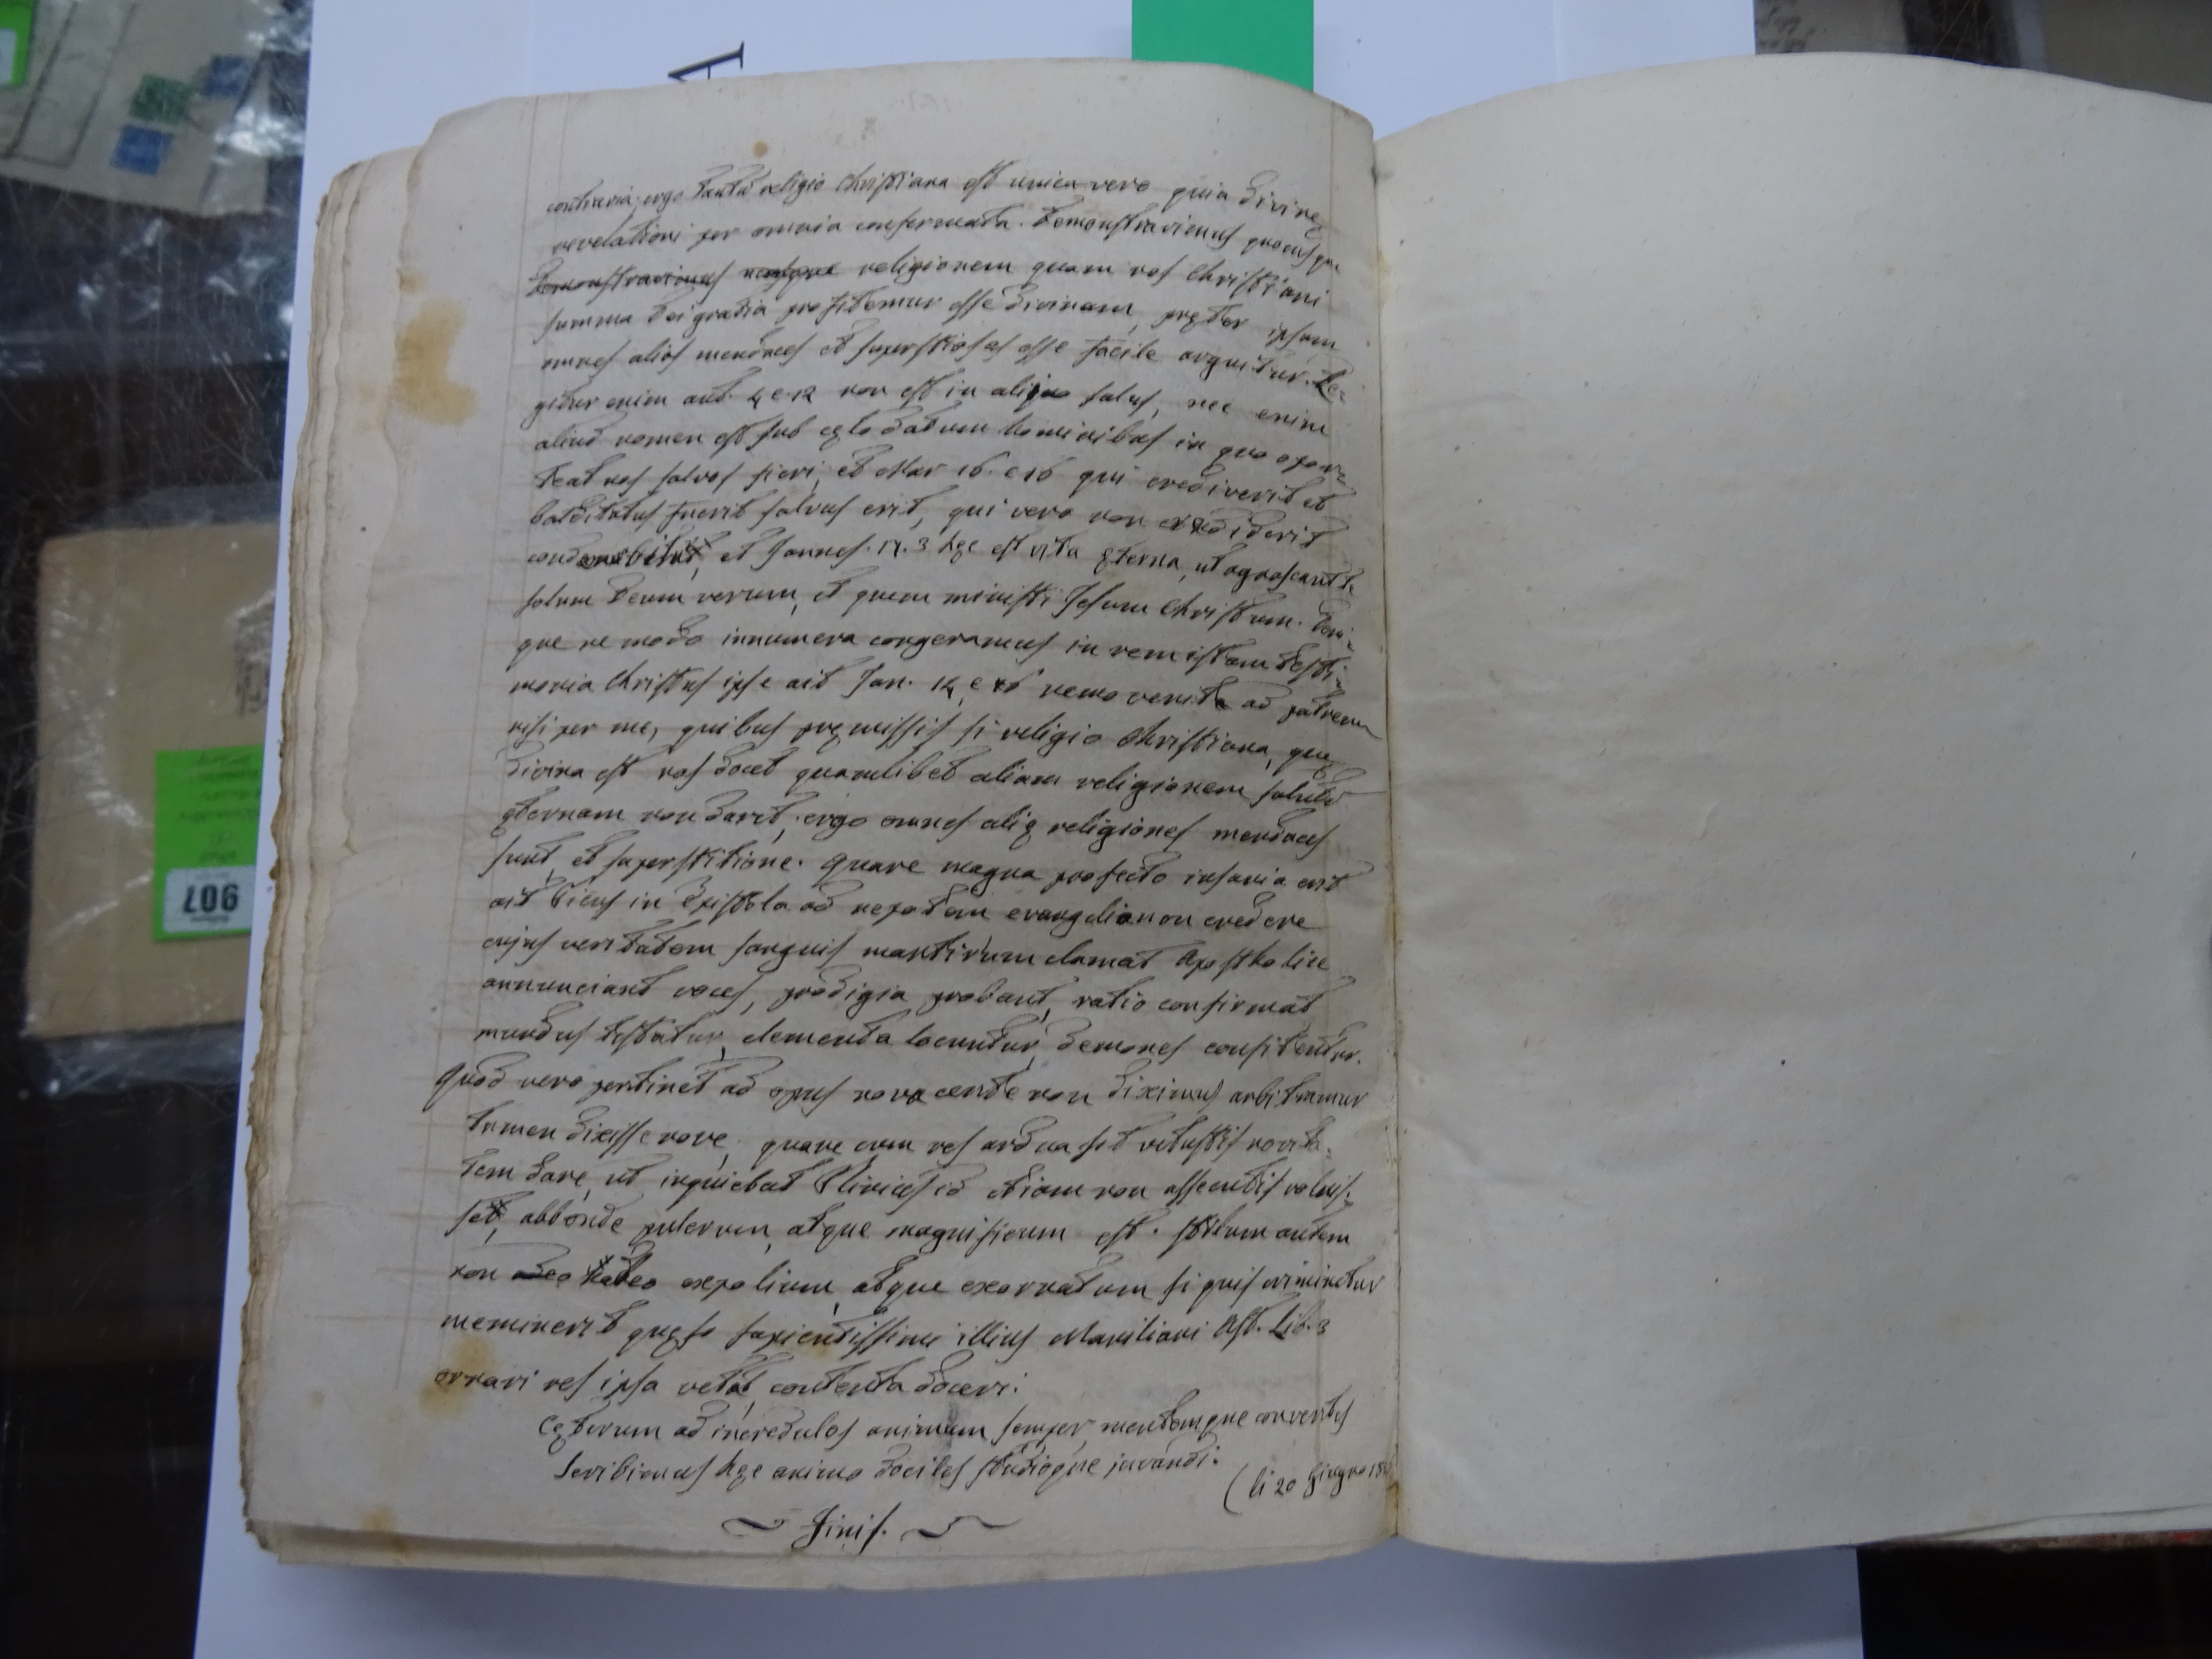 contraria; ergo tantū religio Christiana est unica vero quia divinę
revelationi per omnia conformata. Demonstravimus quocusque
Demonstravimus religionem quam nos Christiani
summa Dei gratia profitemur esse divinam, pręter ipsam
omnes alios mendaces et superstiosas esse facile arguitur. Le=
gitur enim act. 4 e. 12 non est in aliquo salus, nec enim
aliud nomen est sub cęlo datum hominibus in quo opor=
teat nos salvos fieri, et Mar 16. e 16 qui crediverit et
batditatus fuerit salvus erit, qui vero non crediderit
condemnabitur, et Joannes. 17. 3 hęc est vita ęterna, ut agnoscant te
solum Deum verum, et quem missisti Jesum Christum. Deni=
que ne modo innumera congeramus in rem istam testi=
monia Christus ipse ait Joan. 14 e 16 nemo venit ad patrem
nisi per me, quibus pręmissis si religio Christiana, quę
divina est nos docet quamlibet aliam religionem salutē
ęternam non darit, ergo omnes alię religiones mendaces
sunt, et superstitione. Quare magna profecto insania erit
ait Picus in Epistola ad nepotem evangelio non credere
cujus veritatem sanguis martirum clamat Apostholice
annunciant voces, prodigia probant, ratio confirmat
mundus testatur, elementa locuntur, demones confitentur.
Quod vero pertinet ad opus nova certe non diximus arbitramur
tamen dixisse nove, quare cum res ardua sit vetustis novita=
tem dare, ut inquiebat Plinius id etiam non assecutis voluis=
set, abbonde pulcrum, atque magnificum est. Stilum autem
non adeo expolium, atque exornatum si quis criminetur
meminerit quęso sapientissimi illius Maniliani Ast. Lib. 3
ornari res ipsa vetat, contenta doceri.
Cęterum ad incredulos animum semper, mentemque conversus
Scribimus hęc animo dociles studioque juvandi.
(li 20 Giugno 18
Finis.
907